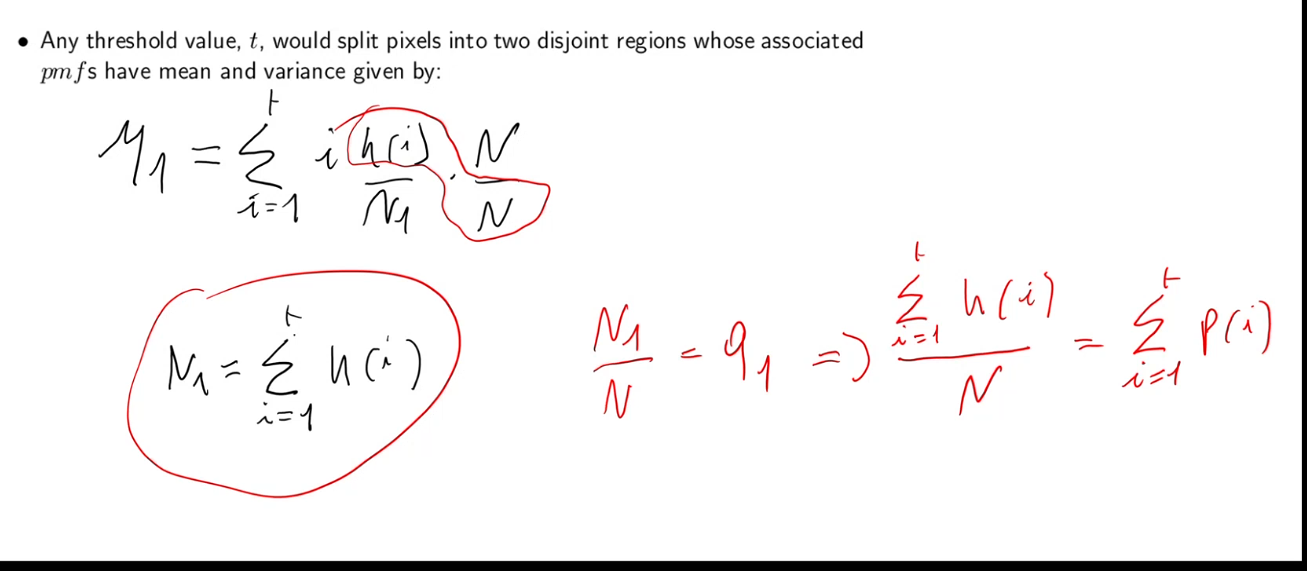 • Any threshold value, t, would split pixels into two disjoint regions whose associated
pmfs have mean and variance given by:
μ₁ = ∑_{i=1}^{t} i h(i)/N₁ · N/N
N₁ = ∑_{i=1}^{t} h(i)
N₁/N = q₁ => (∑_{i=1}^{t} h(i))/N = ∑_{i=1}^{t} p(i)